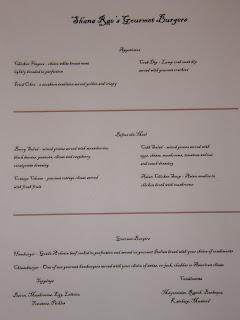 Shana Rae's Gourmet Burgers
Appetizers
Chicken Fingers - choice white breast meat
lightly breaded to perfection
Fried Okra - a southern tradition served golden and crispy
Crab Dip - Lump crab meat dip
served with gourmet crackers
Before the Meal
Berry Salad - mixed greens served with strawberries,
black berries, peanuts, cheese and raspberry
vinaigrette dressing
Cottage Cheese - gourmet cottage cheese served
with fresh fruit
Cobb Salad - mixed greens served with
eggs, cheese, mushrooms, tomatoes and our
own ranch dressing
Asian Chicken Soup - Asian noodles in
chicken broth with mushrooms
Gourmet Burgers
Hamburger - Grade A choice beef cooked to perfection and served on gourmet Italian bread with your choice of condiments
Cheeseburger - One of our gourmet hamburgers served with your choice of swiss, or jack, cheddar or American cheese
Toppings
Bacon, Mushrooms, Egg, Lettuce,
Tomatoes, Pickles
Condiments
Mayonnaise, Ranch, Barbeque,
Ketchup, Mustard